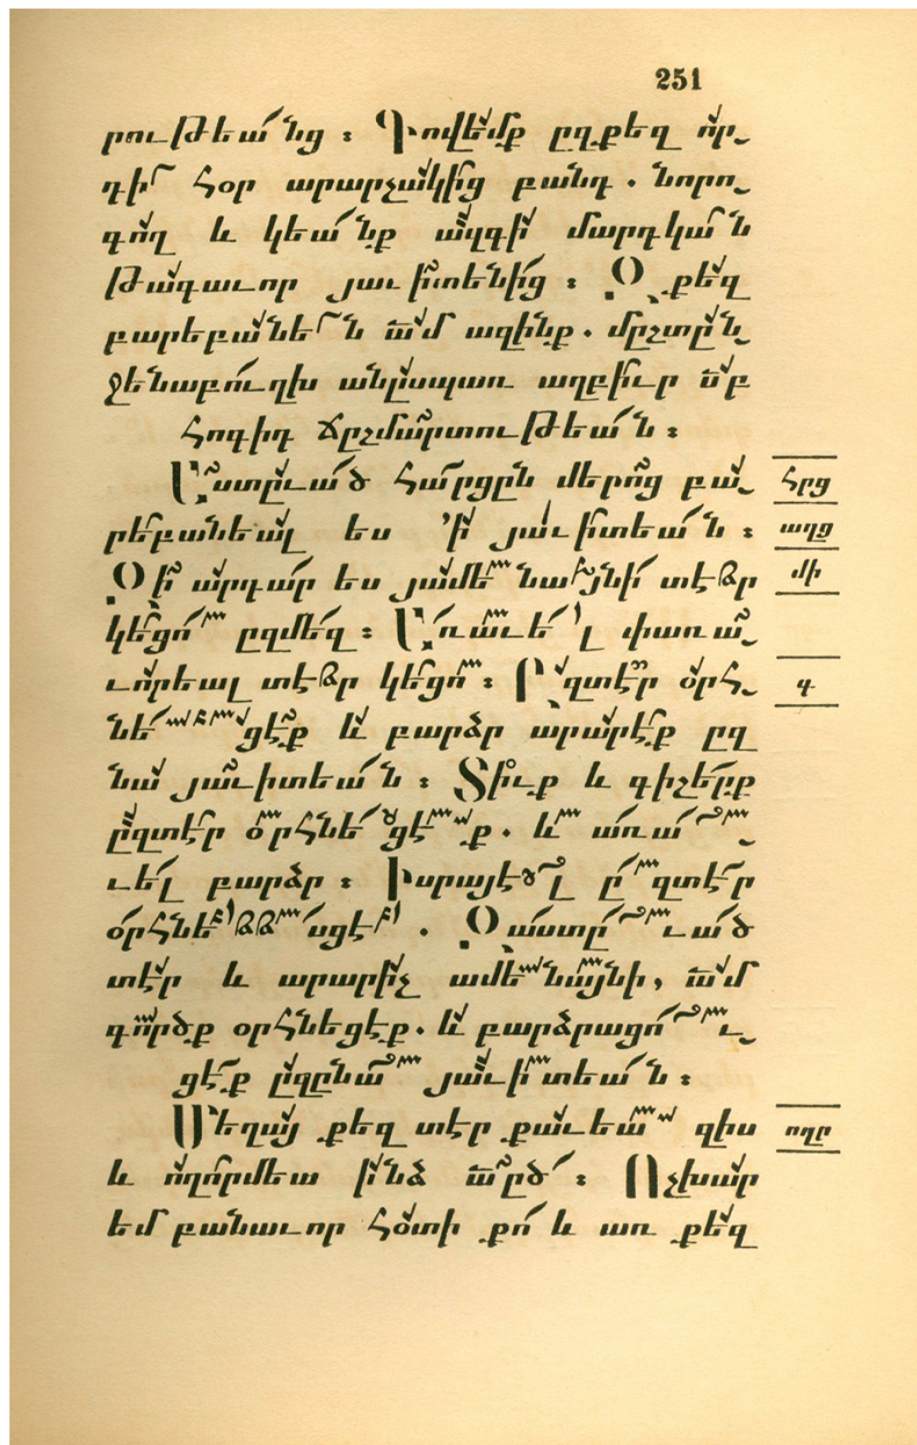 251
րութեանց ։ Գովեմք ըզքեզ որ֊
դի Հօր արարչակից բանդ . նորո֊
գող և կեանք ազգի մարդկան
թագաւոր յաւիտենից ։ Զքեզ
բարեբանեն ամ ազինք . մըշտըն֊
ջենաբուղխ անըսպառ աղբիւր սբ
Հոգիդ ճըշմարտութեան ։
Աստըւած Հարցըն մերոց բա֊ Հրց
րեբանեալ ես ՚ի յաւիտեան ։ աղց
Զի արդար ես յամենայնի տէր մի
կեցո ըզմեզ ։ Առաւել փառա֊
ւորեալ տէր կեցո ։ Ըզտէր օրՀ֊ գ
նեցէք և բարձր արարէք ըզ
նա յաւիտեան ։ Տիւք և գիշերք
ըզտէր օրՀնեցէք . և առա֊
ւել բարձր ։ Իսրայէլ ըզտէր
օրՀնեսցէ . Զաստըւած
տէր և արարիչ ամենայնի, ամ
գործք օրՀնեցէք . և բարձրացու֊
ցէք ըզընա յաւիտեան ։
Մեղայ քեզ տէր քաւեա զիս ողը
և ողորմեա ինձ ած ։ Ոչխար
եմ բանաւոր Հօտի քո և առ քեզ